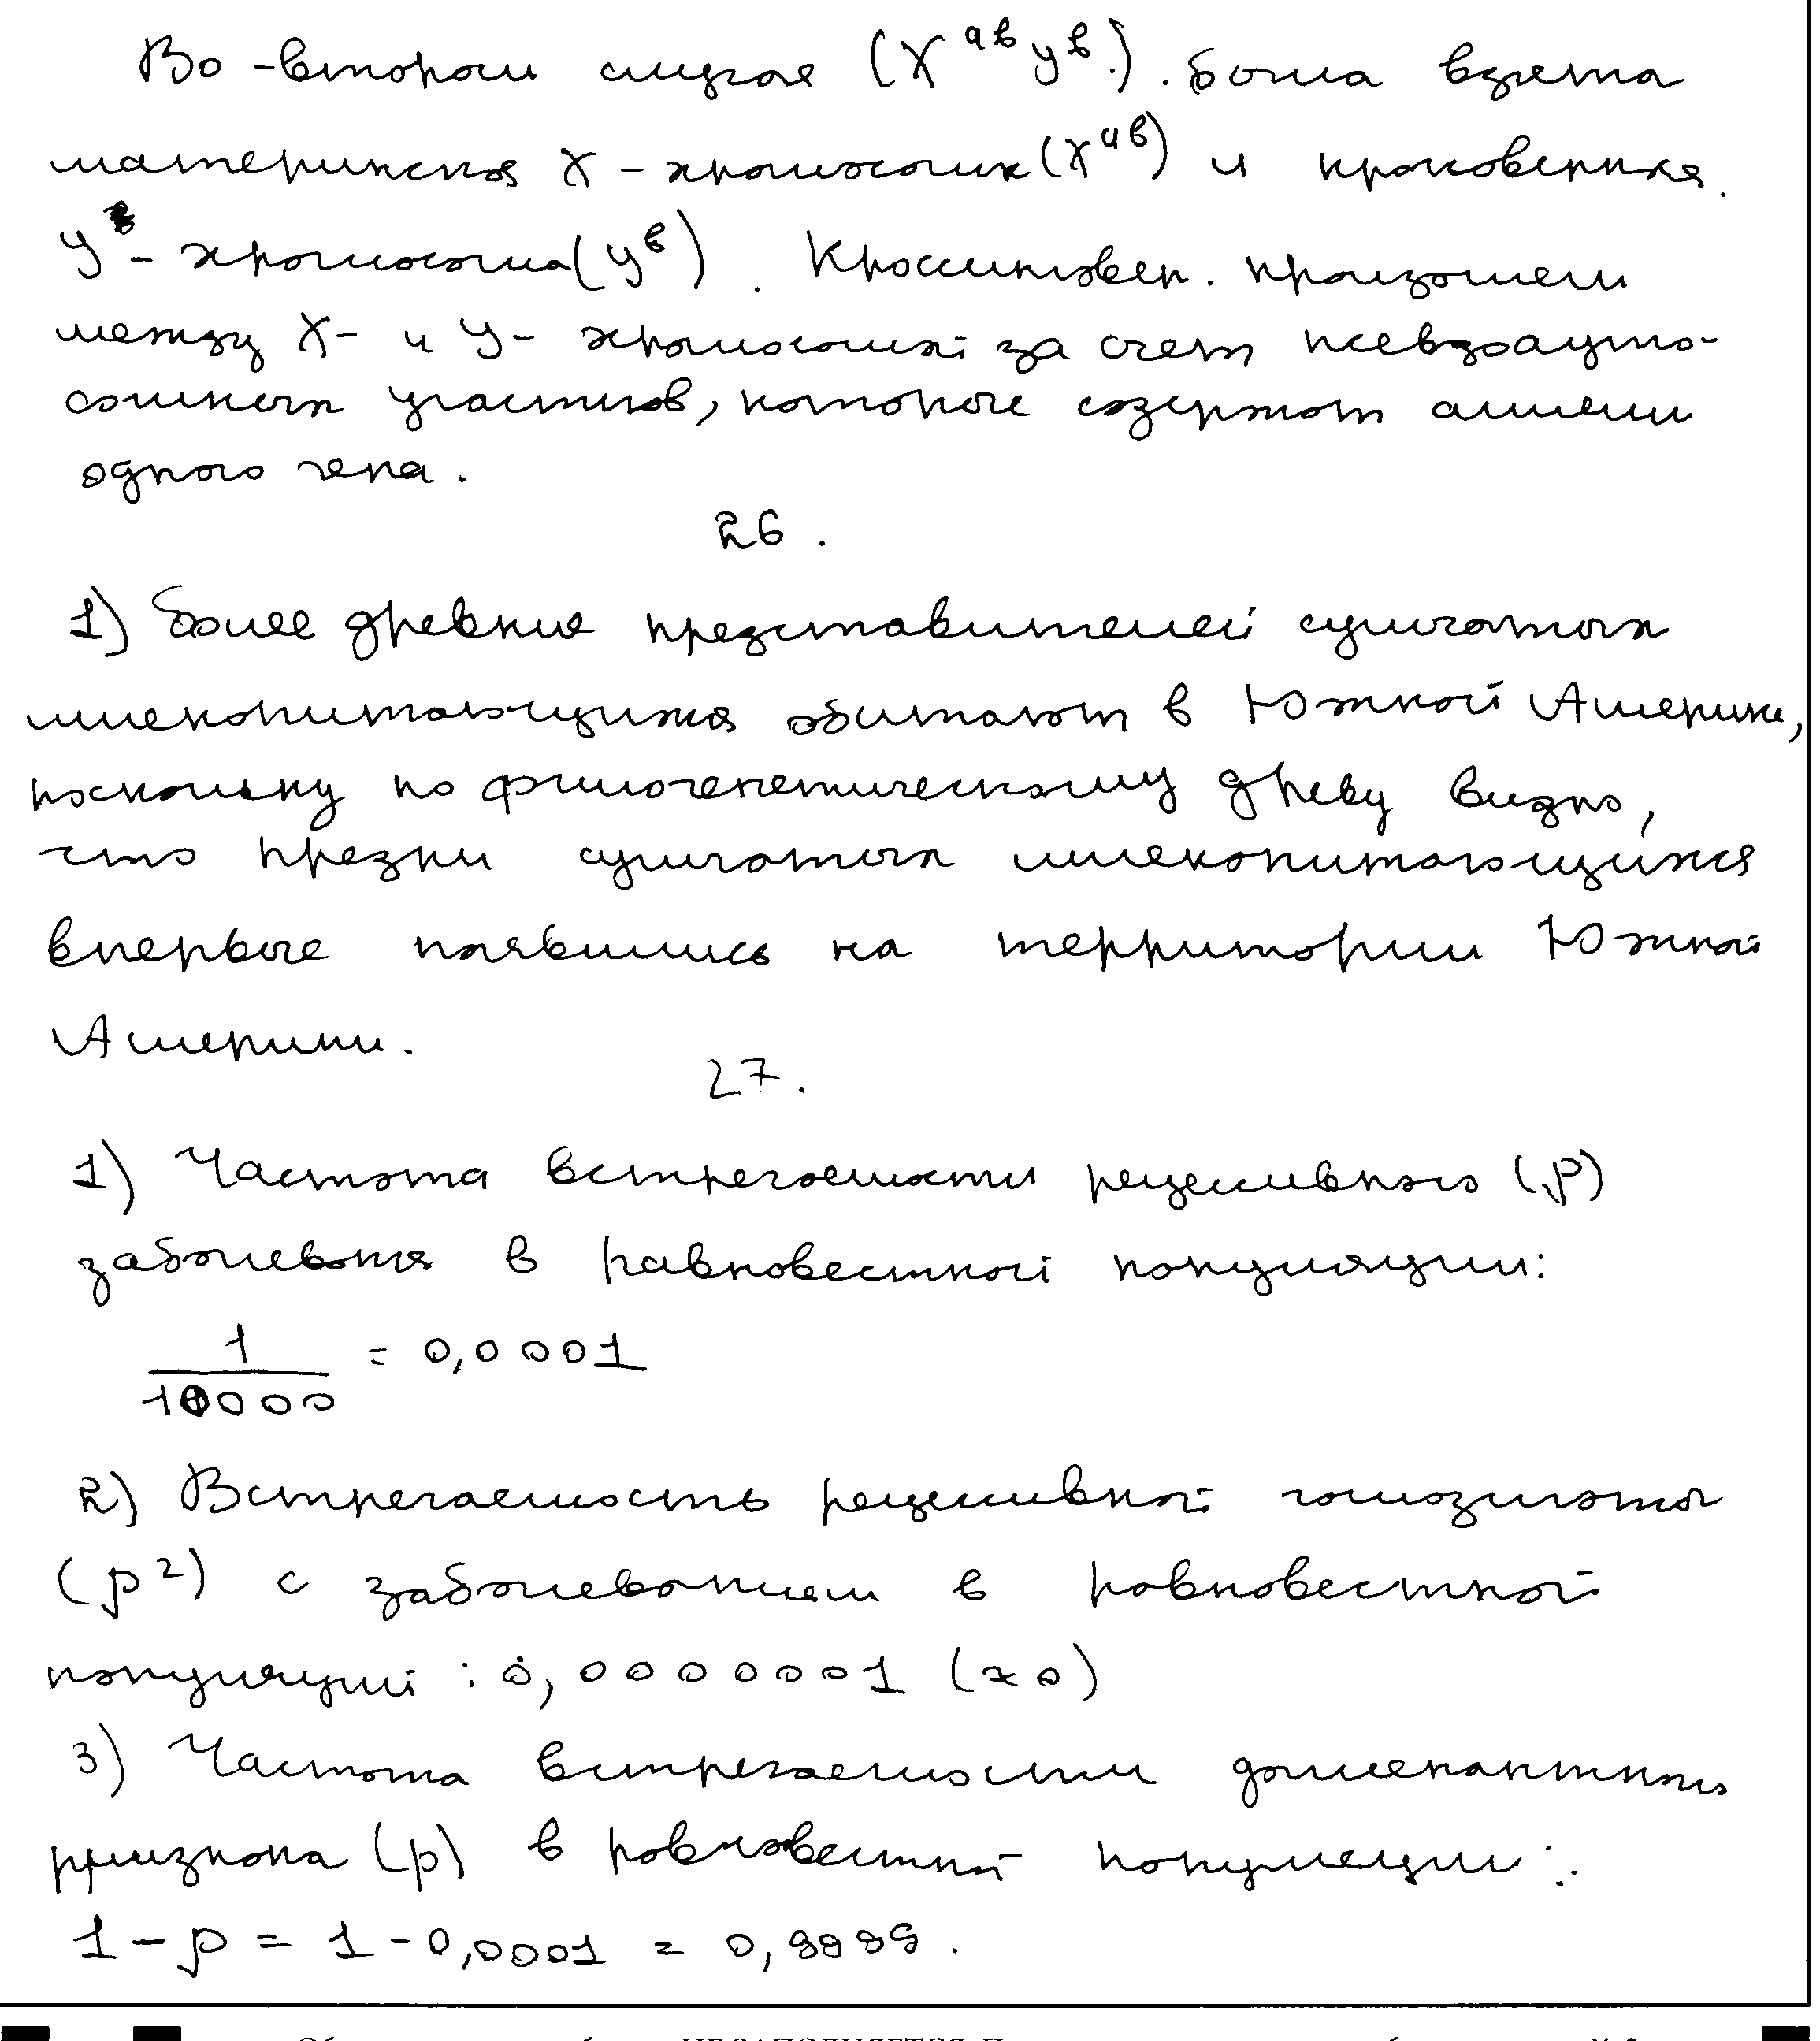 Во-втором случае (X^ав У^в). была взята
материнская X-хромосома (X^ав) и кроссоверная
У-хромосома (У^в). Кроссинговер. произошел
между X- и У- хромосомой за счет псевдоауто-
сомных участков, которые содержат аллели
одного гена.
26.
1) более древние представителей сумчатых
млекопитающихся обитают в Южной Америке,
поскольку по филогенетическому древу видно,
что предки сумчатых млекопитающихся
впервые появились на территории Южной
Америки.
27.
1) Частота встречаемости рецессивного (p)
заболевания в равновестной популяции:
1/10000 = 0,0001
2) Встречаемость рецессивной гомозиготы
(p²) с заболеванием в равновестной
популяций : 0,0000001 (≈0)
3) Частота встречаемости доменантного
признака (p) в равновестной популяции:
1 - p = 1 - 0,0001 = 0,9999.
НЕ ЗАПОЛНЯЕТСЯ